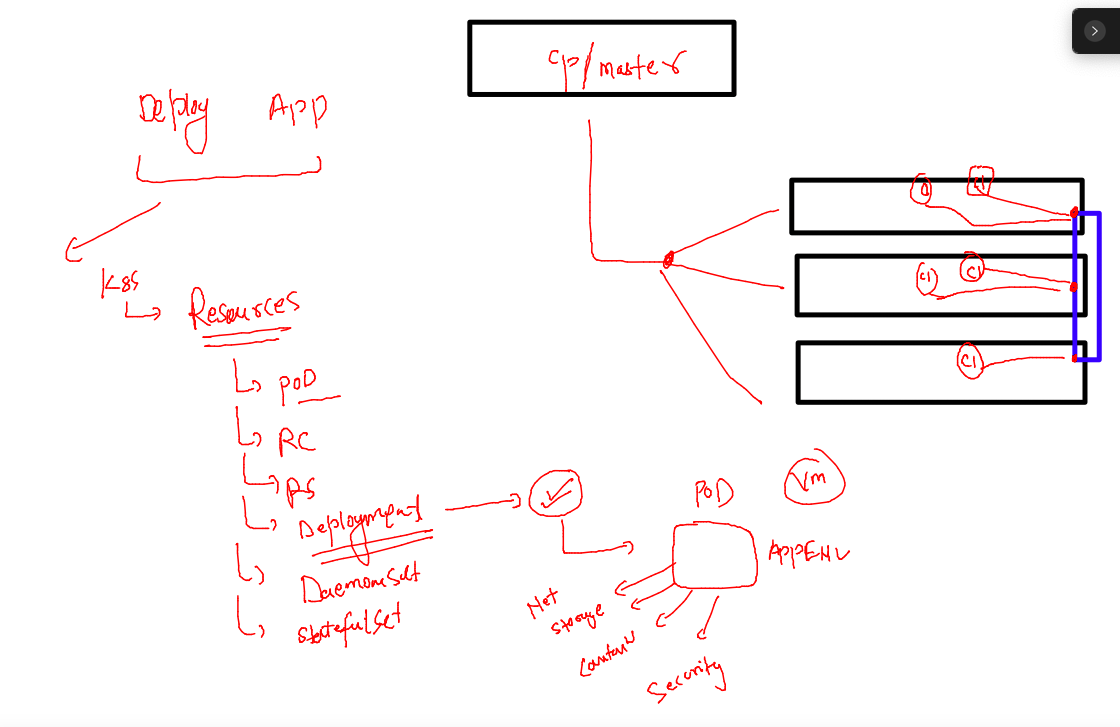 cp/master
Deploy App
K8S
Resources
POD
RC
RS
Deployment
DaemonSet
StatefulSet
C1
C1
C1
C1
POD
Vm
APPENV
Net
storage
Security